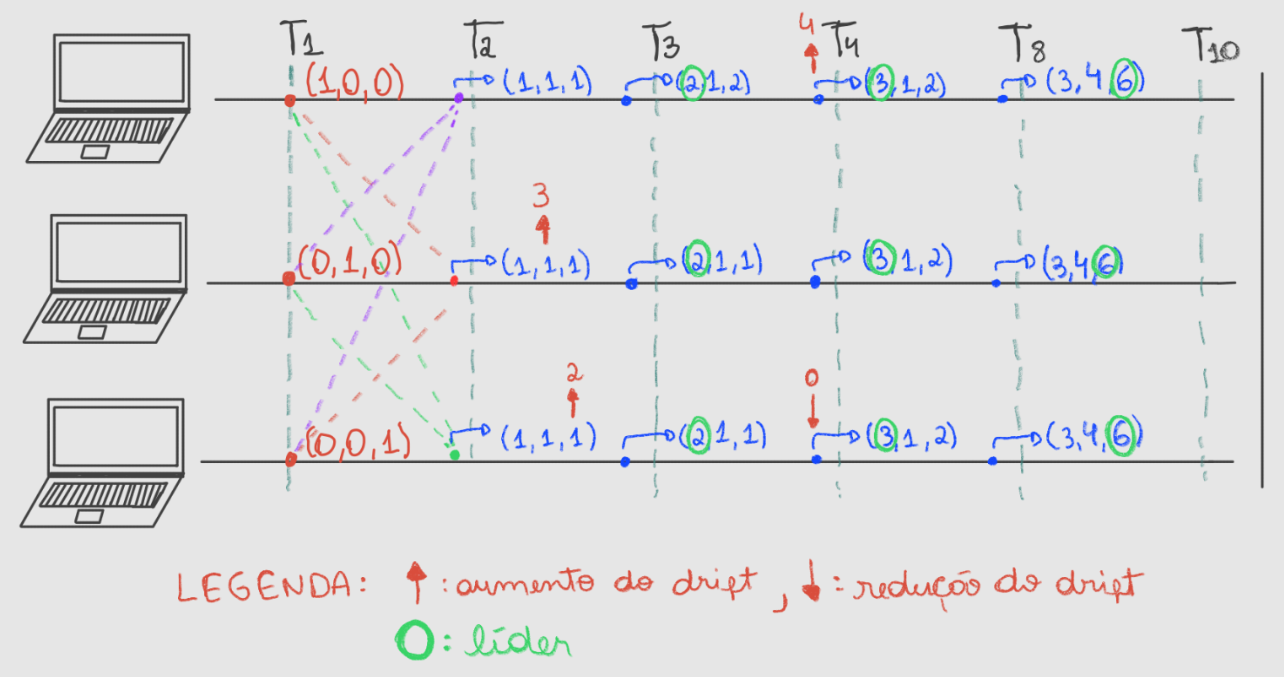 T1 T2 T3 T4 T8 T10
4
(1,0,0) (1,1,1) (2,1,2) (3,1,2) (3,4,6)
3
(0,1,0) (1,1,1) (2,1,1) (3,1,2) (3,4,6)
2 0
(0,0,1) (1,1,1) (2,1,1) (3,1,2) (3,4,6)
LEGENDA: ↑: aumento do drift, ↓: redução do drift
O: líder